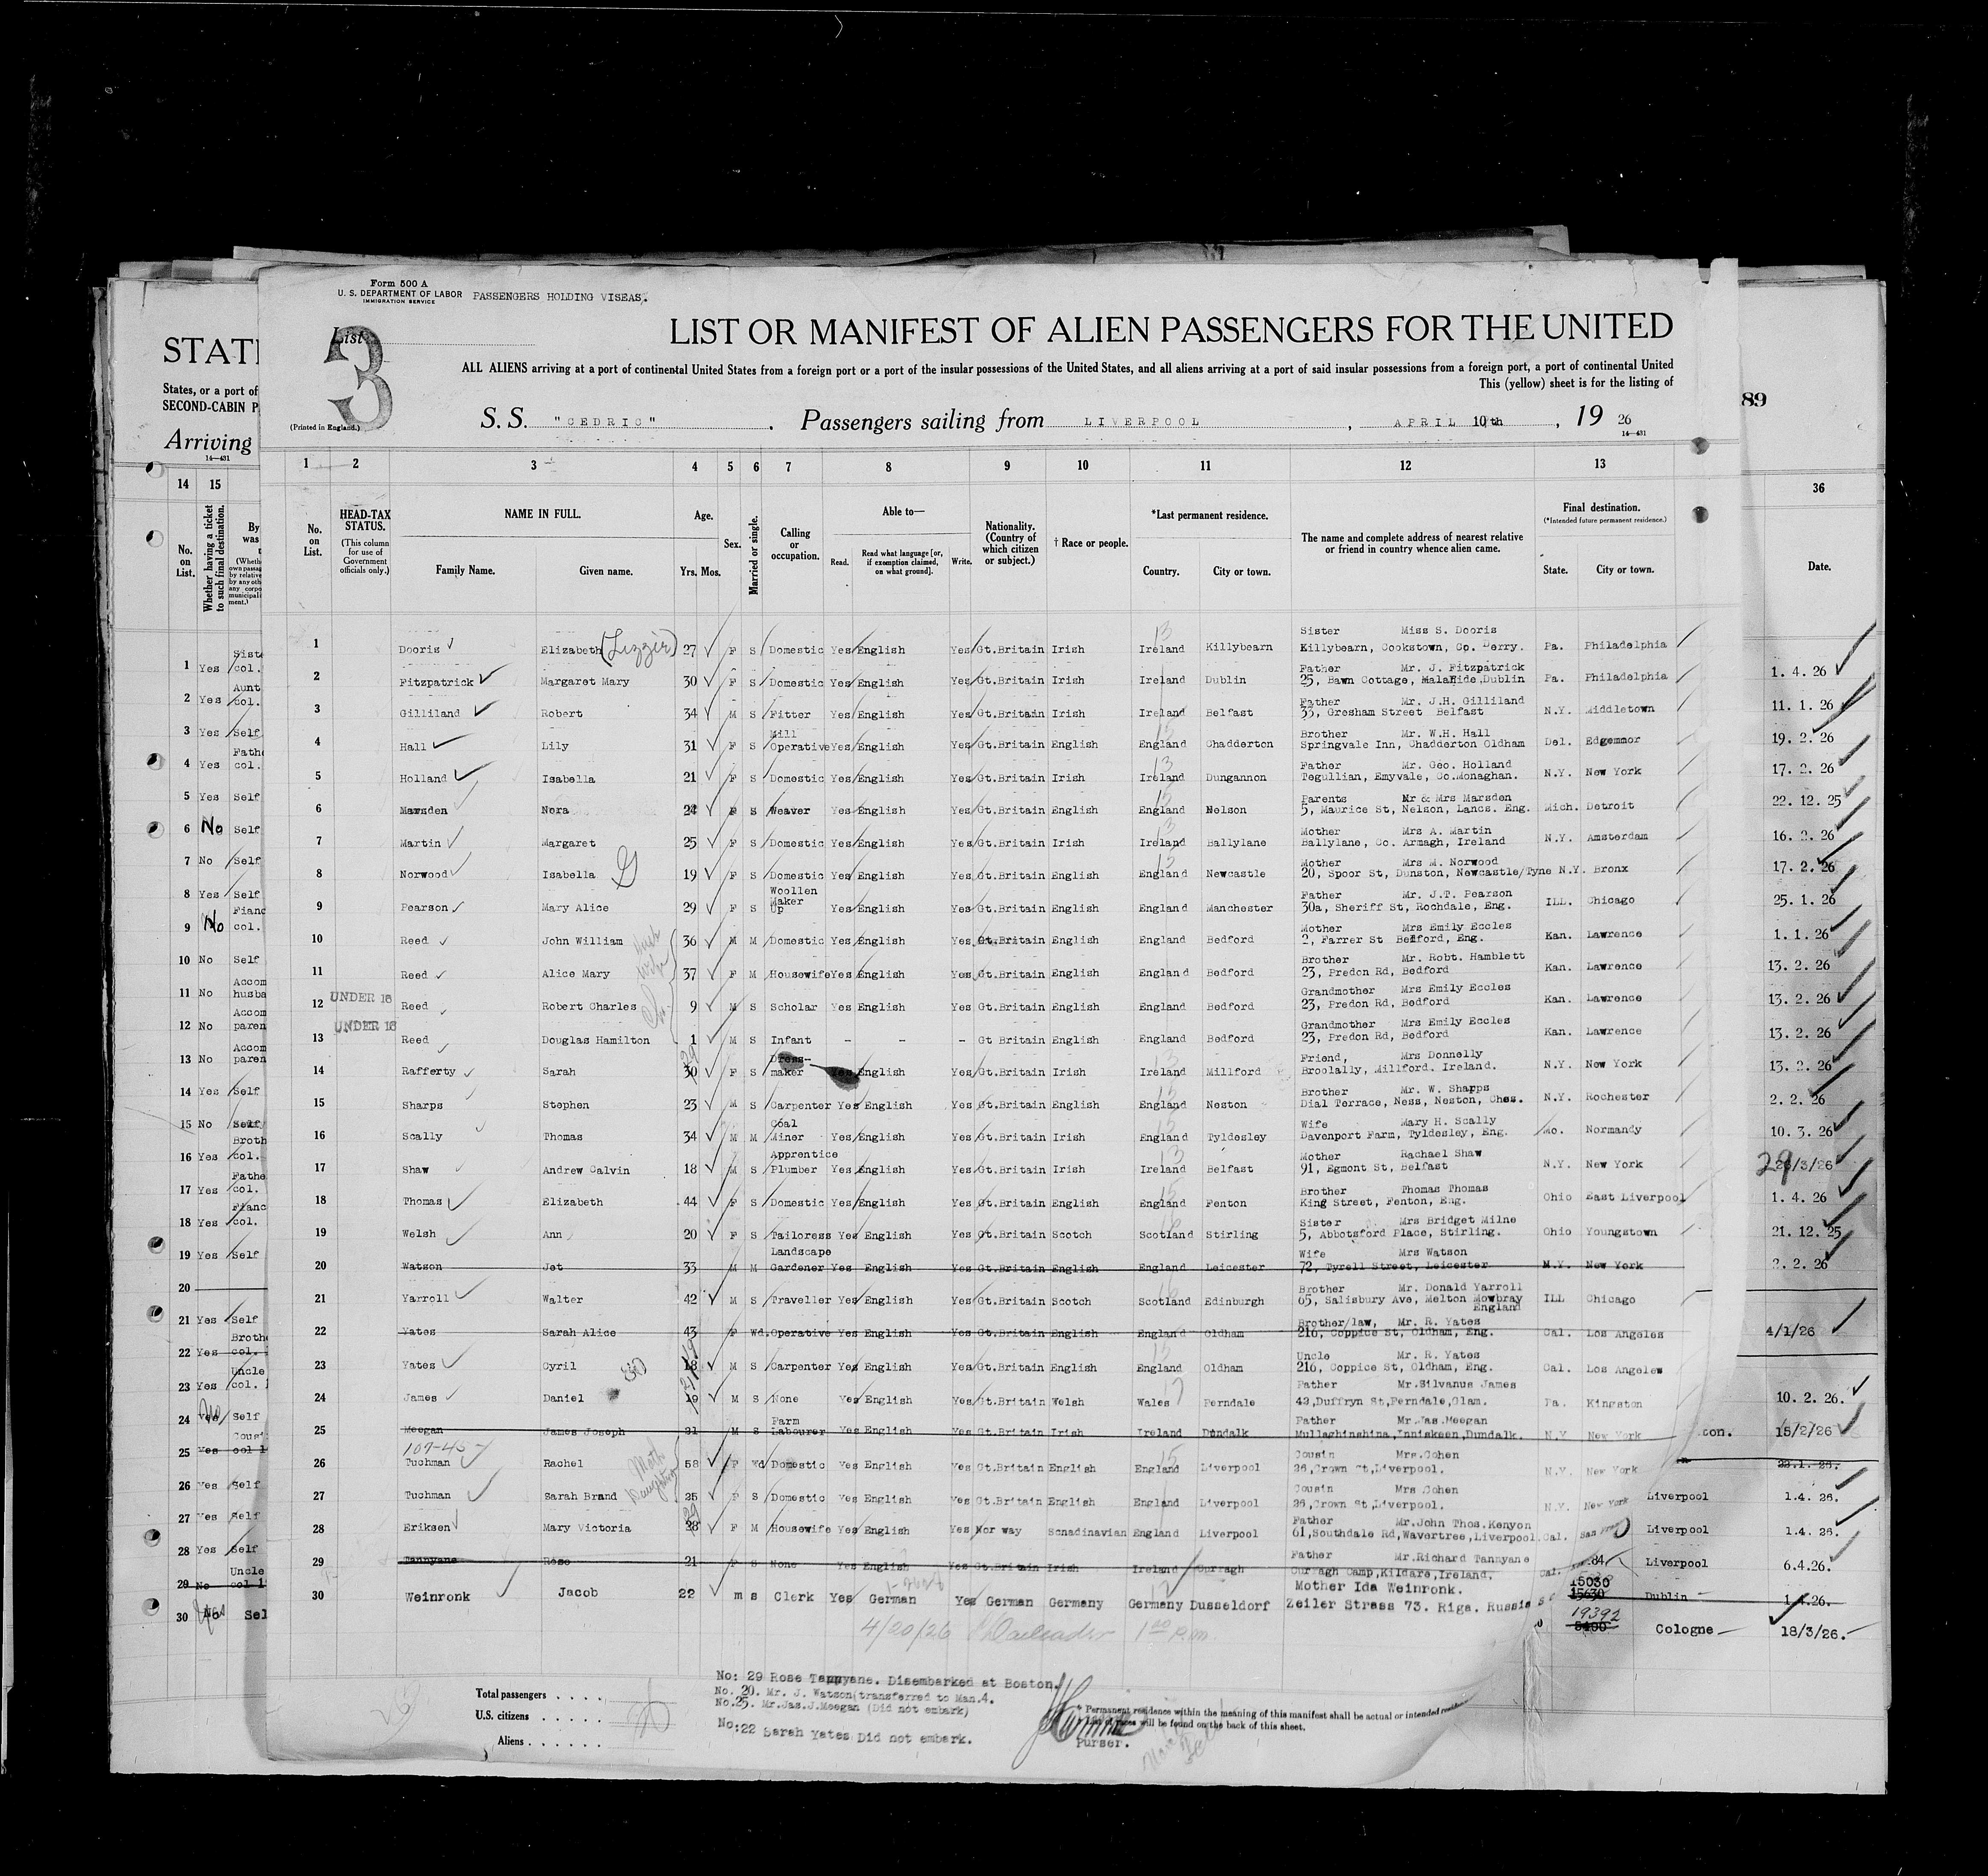 Form 500 A
U. S. DEPARTMENT OF LABOR
IMMIGRATION SERVICE
PASSENGERS HOLDING VISEAS.
List
3
(Printed in England.)
LIST OR MANIFEST OF ALIEN PASSENGERS FOR THE UNITED
ALL ALIENS arriving at a port of continental United States from a foreign port or a port of the insular possessions of the United States, and all aliens arriving at a port of said insular possessions from a foreign port, a port of continental United
This (yellow) sheet is for the listing of
S. S. "CEDRIC" . Passengers sailing from LIVERPOOL , APRIL 10th , 19 26
14—431
STATE
States, or a port of
SECOND-CABIN P
Arriving
14—431
89
1 2 3 4 5 6 7 8 9 10 11 12 13
No. on List.
HEAD-TAX STATUS.
(This column for use of Government officials only.)
NAME IN FULL.
Family Name. Given name.
Age.
Yrs. Mos.
Sex.
Married or single.
Calling or occupation.
Able to—
Read. Read what language [or, if exemption claimed, on what ground]. Write.
Nationality. (Country of which citizen or subject.)
† Race or people.
*Last permanent residence.
Country. City or town.
The name and complete address of nearest relative or friend in country whence alien came.
Final destination.
(*Intended future permanent residence.)
State. City or town.
14 15
No. on List.
Whether having a ticket to such final destination.
36
Date.
1 Dooris Elizabeth (Lizzie) 27 F S Domestic Yes English Yes Gt.Britain Irish Ireland Killybearn Sister Miss S. Dooris Killybearn, Cookstown, Co. Derry. Pa. Philadelphia
2 Fitzpatrick Margaret Mary 30 F S Domestic Yes English Yes Gt.Britain Irish Ireland Dublin Father Mr. J. Fitzpatrick 25, Bawn Cottage, Malahide,Dublin Pa. Philadelphia
3 Gilliland Robert 34 M S Fitter Yes English Yes Gt.Britain Irish Ireland Belfast Father Mr. J.H. Gilliland 33, Gresham Street Belfast N.Y. Middletown
4 Hall Lily 31 F S Mill Operative Yes English Yes Gt.Britain English England Chadderton Brother Mr. W.H. Hall Springvale Inn, Chadderton Oldham Del. Edgemmor
5 Holland Isabella 21 F S Domestic Yes English Yes Gt.Britain Irish Ireland Dungannon Father Mr. Geo. Holland Tegullian, Emyvale, Co.Monaghan. N.Y. New York
6 Marsden Nora 24 F S Weaver Yes English Yes Gt.Britain English England Nelson Parents Mr & Mrs Marsden 5, Maurice St, Nelson, Lancs. Eng. Mich. Detroit
7 Martin Margaret 25 F S Domestic Yes English Yes Gt.Britain Irish Ireland Ballylane Mother Mrs A. Martin Ballylane, Co. Armagh, Ireland N.Y. Amsterdam
8 Norwood Isabella 19 F S Domestic Yes English Yes Gt.Britain English England Newcastle Mother Mrs M. Norwood 20, Spoor St, Dunston, Newcastle/Tyne N.Y. Bronx
9 Pearson Mary Alice 29 F S Woollen Maker Up Yes English Yes Gt.Britain English England Manchester Father Mr. J.T. Pearson 30a, Sheriff St, Rochdale, Eng. ILL. Chicago
10 Reed John William 36 M M Domestic Yes English Yes Gt.Britain English England Bedford Mother Mrs Emily Eccles 2, Farrer St Bedford, Eng. Kan. Lawrence
11 Reed Alice Mary 37 F M Housewife Yes English Yes Gt.Britain English England Bedford Brother Mr. Robt. Hamblett 23, Predon Rd, Bedford Kan. Lawrence
12 UNDER 16 Reed Robert Charles 9 M S Scholar Yes English Yes Gt.Britain English England Bedford Grandmother Mrs Emily Eccles 23, Predon Rd, Bedford Kan. Lawrence
13 UNDER 16 Reed Douglas Hamilton 1 M S Infant - - - Gt Britain English England Bedford Grandmother Mrs Emily Eccles 23, Predon Rd, Bedford Kan. Lawrence
14 Rafferty Sarah 30 F S Dress-maker Yes English Yes Gt.Britain Irish Ireland Millford Friend, Mrs Donnelly Broolally, Millford. Ireland. N.Y. New York
15 Sharps Stephen 23 M S Carpenter Yes English Yes Gt.Britain English England Neston Brother Mr. W. Sharps Dial Terrace, Ness, Neston, Ches. N.Y. Rochester
16 Scally Thomas 34 M M Coal Miner Yes English Yes Gt.Britain Irish England Tyldesley Wife Mary H. Scally Davenport Farm, Tyldesley, Eng. Mo. Normandy
17 Shaw Andrew Calvin 18 M S Apprentice Plumber Yes English Yes Gt.Britain Irish Ireland Belfast Mother Rachael Shaw 91, Egmont St, Belfast N.Y. New York
18 Thomas Elizabeth 44 F S Domestic Yes English Yes Gt.Britain English England Fenton Brother Thomas Thomas King Street, Fenton, Eng. Ohio East Liverpool
19 Welsh Ann 20 F S Tailoress Yes English Yes Gt.Britain Scotch Scotland Stirling Sister Mrs Bridget Milne 5, Abbotsford Place, Stirling. Ohio Youngstown
20 Watson Jet 33 M M Landscape Gardener Yes English Yes Gt.Britain English England Leicester Wife Mrs Watson 72, Tyrell Street, Leicester N.Y. New York
21 Yarroll Walter 42 M S Traveller Yes English Yes Gt.Britain Scotch Scotland Edinburgh Brother Mr. Donald Yarroll 65, Salisbury Ave, Melton Mowbray England ILL Chicago
22 Yates Sarah Alice 43 F Wd. Operative Yes English Yes Gt.Britain English England Oldham Brother/law, Mr. R. Yates 216, Coppice St, Oldham, Eng. Cal. Los Angeles
23 Yates Cyril 18 M S Carpenter Yes English Yes Gt.Britain English England Oldham Uncle Mr. R. Yates 216, Coppice St, Oldham, Eng. Cal. Los Angeles
24 James Daniel 19 M S None Yes English Yes Gt.Britain Welsh Wales Ferndale Father Mr.Silvanus James 43,Duffryn St,Ferndale,Glam. Pa. Kingston
25 Meegan James Joseph 21 M S Farm Labourer Yes English Yes Gt.Britain Irish Ireland Dundalk Father Mr.Jas.Meegan Mullaghinshina,Inniskeen,Dundalk. N.Y. New York
107-45
26 Tuchman Rachel 58 F Wd Domestic Yes English Yes Gt.Britain English England Liverpool Cousin Mrs.Cohen 26,Crown St,Liverpool. N.Y. New York
27 Tuchman Sarah Brand 25 F S Domestic Yes English Yes Gt.Britain English England Liverpool Cousin Mrs Cohen 26,Crown St,Liverpool. N.Y. New York
28 Eriksen Mary Victoria 28 F M Housewife Yes English Yes Nor way Scnadinavian England Liverpool Father Mr.John Thos.Kenyon 61,Southdale Rd,Wavertree,Liverpool. Cal. San Fran
29 Tannyane Rose 21 F S None Yes English Yes Gt.Britain Irish Ireland Curragh Father Mr.Richard Tannyane Curragh Camp,Kildare,Ireland. Cal.
30 Weinronk Jacob 22 m s Clerk Yes German Yes German Germany Germany Dusseldorf Mother Ida Weinronk. Zeiler Strass 73. Riga. Russia
4/20/26 1 00 P.M.
Total passengers . . . .
U.S. citizens . . . . .
Aliens . . . . . .
No: 29 Rose Tannyane. Disembarked at Boston.
No. 20. Mr. J. Watson(transferred to Man.4.
No.25. Mr.Jas.J.Meegan (Did not embark)
No:22 Sarah Yates Did not embark.
Purser.
* Permanent residence within the meaning of this manifest shall be actual or intended
† List of races will be found on the back of this sheet.
1 Yes Siste col.
2 Yes Aunt col.
3 Yes Self
4 Yes Fathe col.
5 Yes Self
6 No Self
7 No Self
8 Yes Self
9 No Fianc col.
10 No Self
11 No Accom husba
12 No Accom paren
13 No Accom paren
14 Yes Self
15 No Self
16 Yes Broth col.
17 Yes Fathe col.
18 Yes Fianc col.
19 Yes Self
20
21 Yes Self
22 Yes Brothe col.
23 Yes Uncle col.
24 Yes No Self
25 Yes Cousi col
26 Yes Self
27 Yes Self
28 Yes Self
29 No Uncle col
30 No Yes Sel
1. 4. 26
11. 1. 26
19. 2. 26
17. 2. 26
22. 12. 25
16. 2. 26
17. 2. 26
25. 1. 26
1. 1. 26
13. 2. 26
13. 2. 26
13. 2. 26
13. 2. 26
2. 2. 26
10. 3. 26
29 26/3/26
1. 4. 26
21. 12. 25
2. 2. 26
4/1/26
10. 2. 26.
ton. 15/2/26
22.1. 26.
Liverpool 1.4. 26.
Liverpool 1.4. 26.
Liverpool 6.4.26.
15030 15630 Dublin 1.4.26.
19392 5400 Cologne 18/3/26.